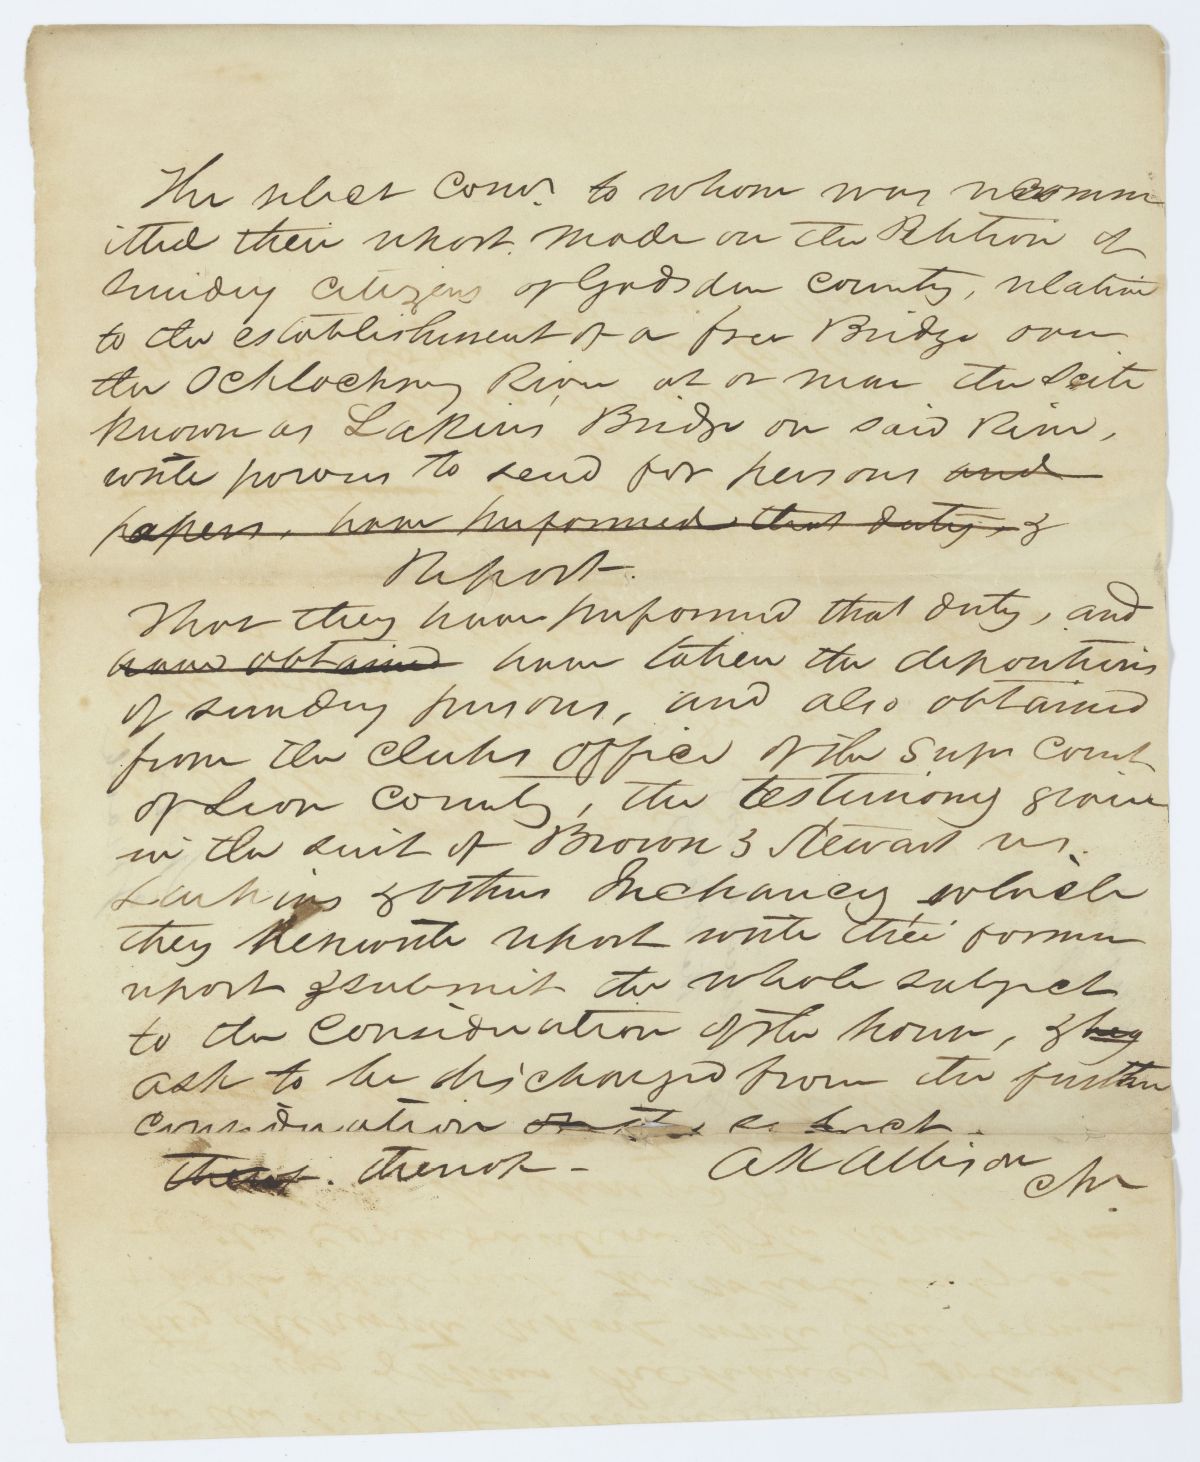 The select Comr. to whom was recomm
itted their report made on the Petition of
Sundry Citizens of Gadsden County, relative
to the establishment of a free Bridge over
the Ochlockney River at or near the Scite
known as Lakins Bridge on said River,
with powers to send for persons and
papers, have performed that duty, &
Report.
That they have performed that duty, and
have obtained have taken the depositions
of sundry persons, and also obtained
from the Clerks Office of the Supr Court
of Leon County, the testimony given
in the suit of Brown & Stewart vs.
Larkins & others In chancey which
they herewith report with their former
report & submit the whole subject
to the Consideration of the house, & beg
ask to be discharged from the further
consideration subject.
thereof. thereof - A K Allison
Chr.